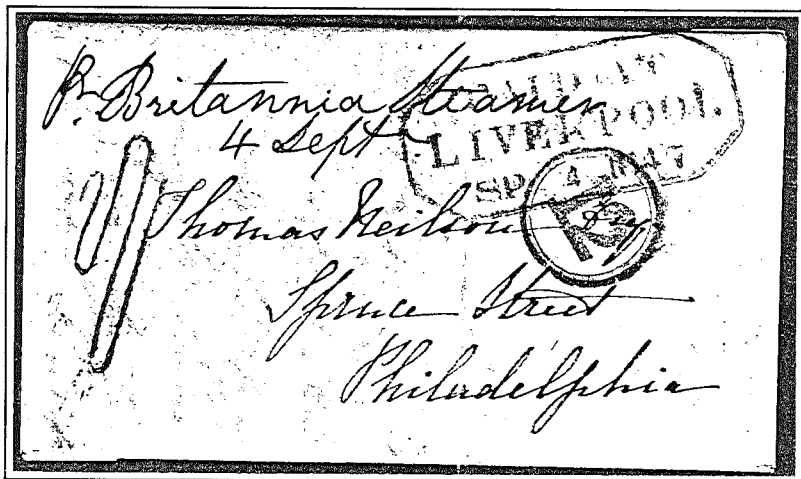 Pr. Britannia Steamer
4 Sept
PAID AT
LIVERPOOL.
SP 4 1847
1/
Thomas Neilson Esq
Spruce Street
Philadelphia